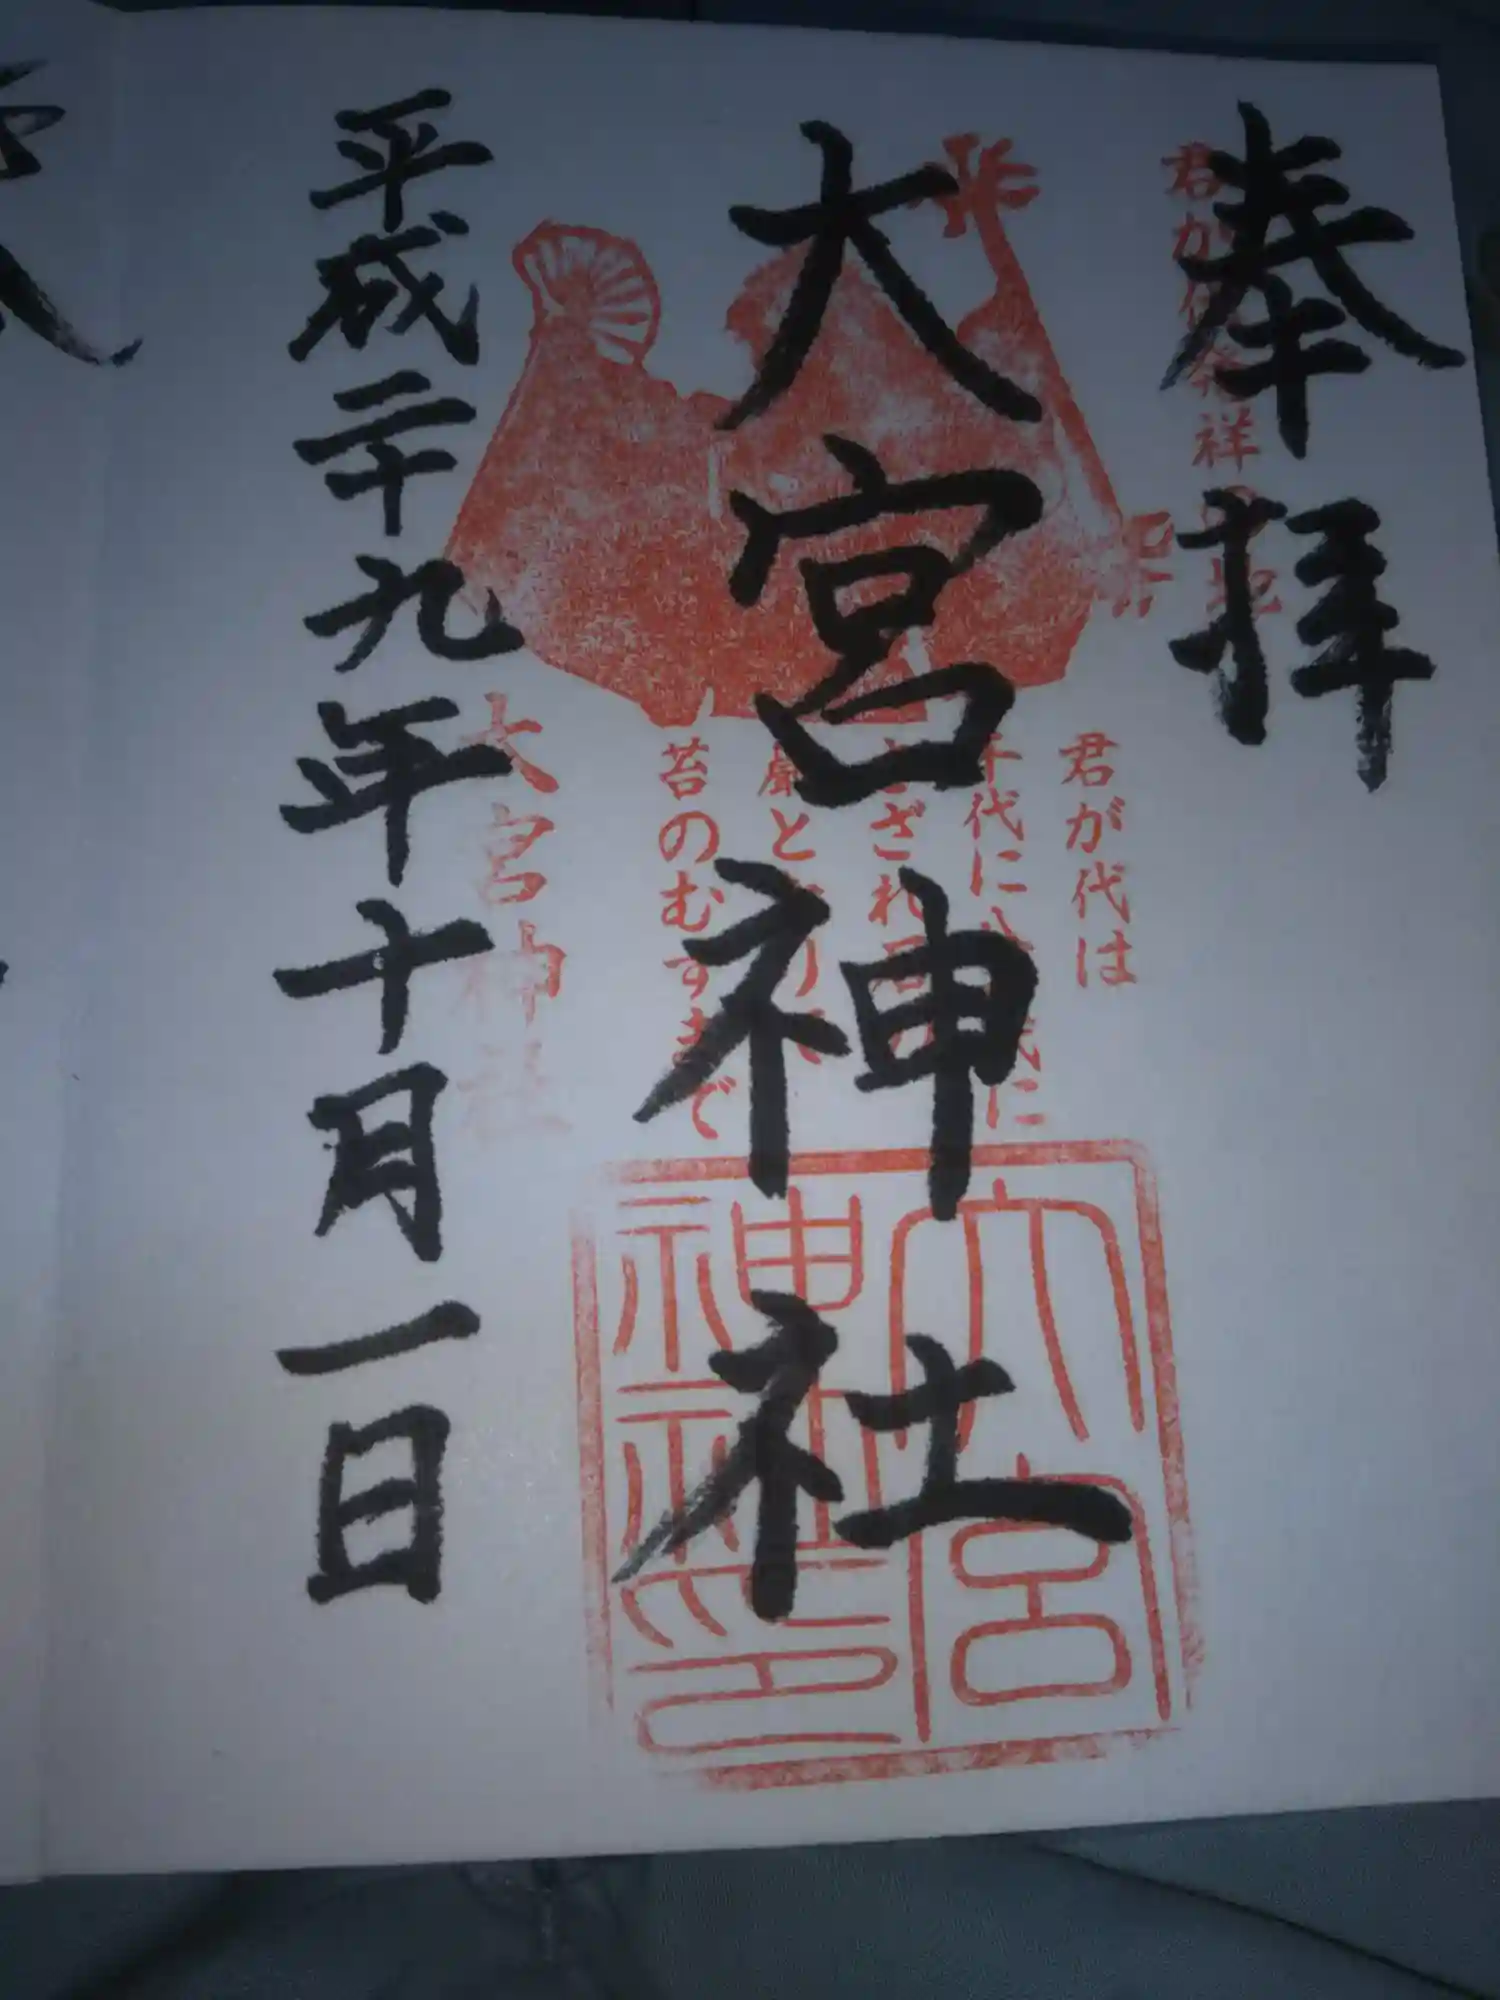 奉拝
君が代発祥の地
君が代は
千代に八千代に
さざれ石の
巌となりて
苔のむすまで
大宮神社
大宮神社
平成二十九年十月一日
大宮
神社印